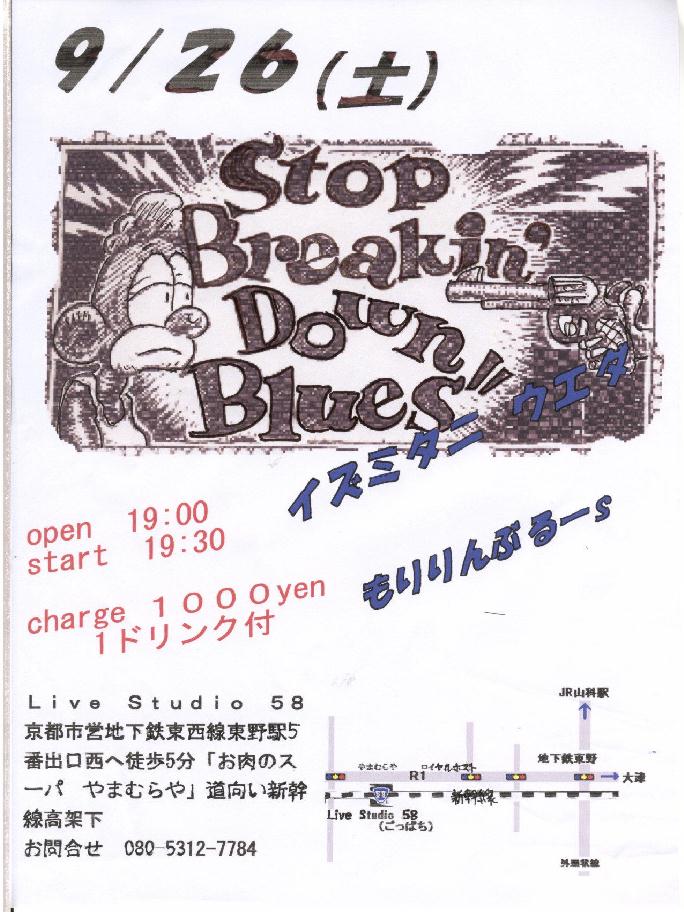 9/26(土)
Stop
Breakin'
Down
Blues"
イズミタニ ウエダ
open 19:00
start 19:30
もりりんぶるーs
charge １０００yen
1ドリンク付
Ｌｉｖｅ Ｓｔｕｄｉｏ ５８
京都市営地下鉄東西線東野駅5
番出口西へ徒歩5分「お肉のス
ーパ やまむらや」道向い新幹
線高架下
お問合せ 080-5312-7784
JR山科駅
やまむらや ロイヤルホスト 地下鉄東野
R1
大津
58 新幹線
Live Studio 58
(ごっぱち)
外環状線